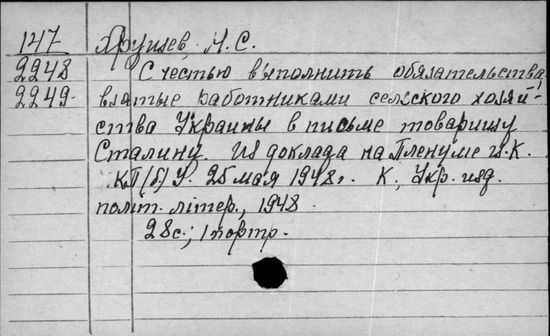 147 Хрущев, Н.С.
2248 С честью выполнить обязательства,
2249 взятые работниками сельского хозяй-
ства Украины в письме товарищу
Сталину. Из доклада на Пленуме ц.К.
КП(б)У. 25 мая 1948г. К., Укр. изд.
політ. літер., 1948.
28с.; 1 портр.